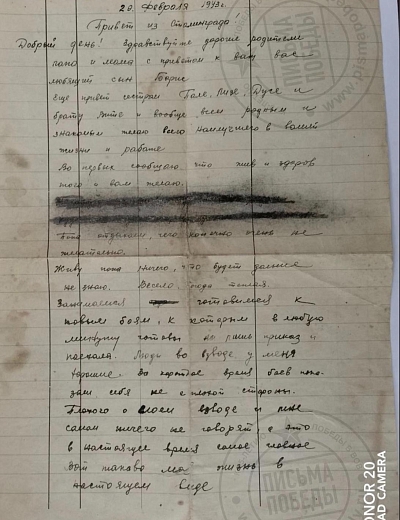 20. Февраля 1943г.
Привет из Сталинграда!
Добрый день! Здравствуйте дорогие родители
папа и мама с приветом к вам ваш
любящий сын Борис
Еще привет сестрам Гале, Лизе, Дусе и
брату Вите и вообще всем родным и
знакомым желаю всего наилучшего в вашей
жизни и работе
Во первых сообщаю что жив и здоров
того и вам желаю.
отдыхаем, чего, конечно очень не
желательно.
Живу пока ничего, что будет дальше
не знаю.
Занимаемся готовимся к
новым боям, к которым в любую
минуту готовы лишь приказ и
поехали. Люди во взводе у меня
хорошие. За короткое время боев пока-
зали себя не с плохой стороны.
Плохого о моем взводе и мне
самом ничего не говорят, а это
в настоящее время самое главное
вот такова моя жизнь в
настоящем виде
ПИСЬМА
ПОБЕДЫ
ПИСЬМА
ПОБЕДЫ
HONOR 20
AD CAMERA